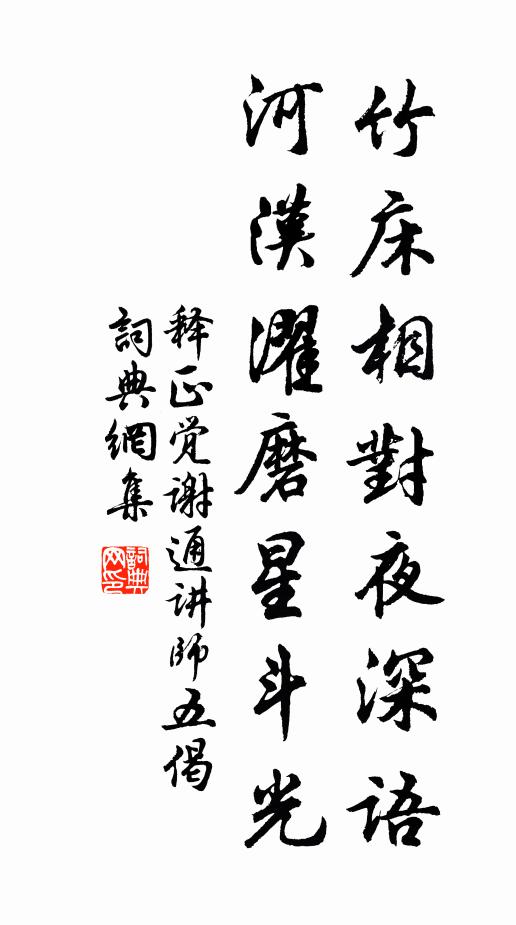 竹床相對夜深語
河漢濯磨星斗光
释正觉谢通讲师五偈
詞典網集
詞典网印